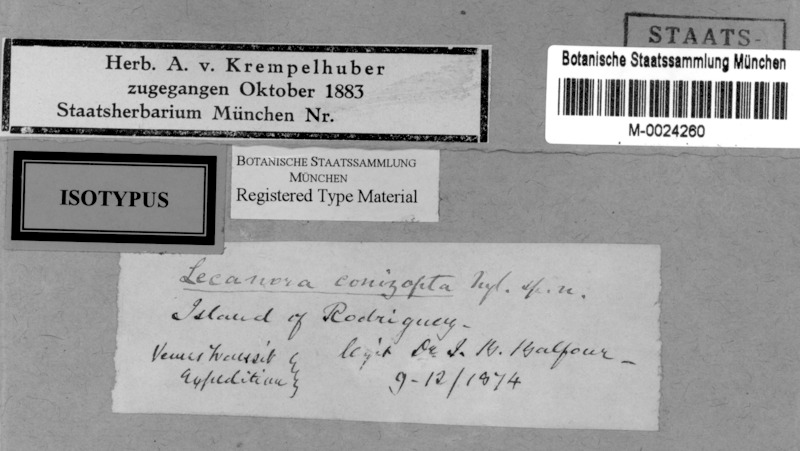 STAATS-
Herb. A. v. Krempelhuber
zugegangen Oktober 1883
Staatsherbarium München Nr.
Botanische Staatssammlung München
M-0024260
ISOTYPUS
BOTANISCHE STAATSSAMMLUNG
MÜNCHEN
Registered Type Material
Lecanora conizopta Nyl. sp. n.
Island of Rodriguez-
Venus Transit legit Dr. I. B. Balfour-
Expedition 9-12/1874